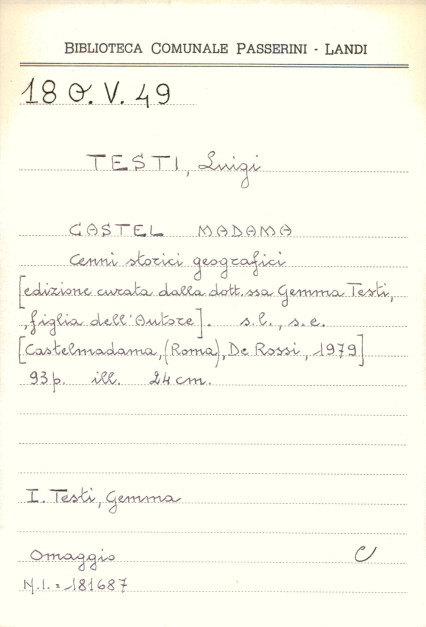 BIBLIOTECA COMUNALE PASSERINI - LANDI
18 O. V. 49
TESTI, Luigi
CASTEL MADAMA
Cenni storici geografici
[edizione curata dalla dott.ssa Gemma Testi,
,figlia dell'Autore]. s.l., s.e.
[Castelmadama, (Roma), De Rossi, 1979]
93p. ill. 24cm.
I. Testi, Gemma
Omaggio C
N.I. = 181687